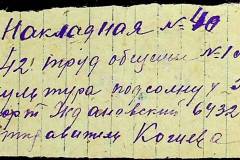 Накладная № 40
42! труд общины № 1
ультура подсолну
орт Ждановский 6432
тправитель Когиева